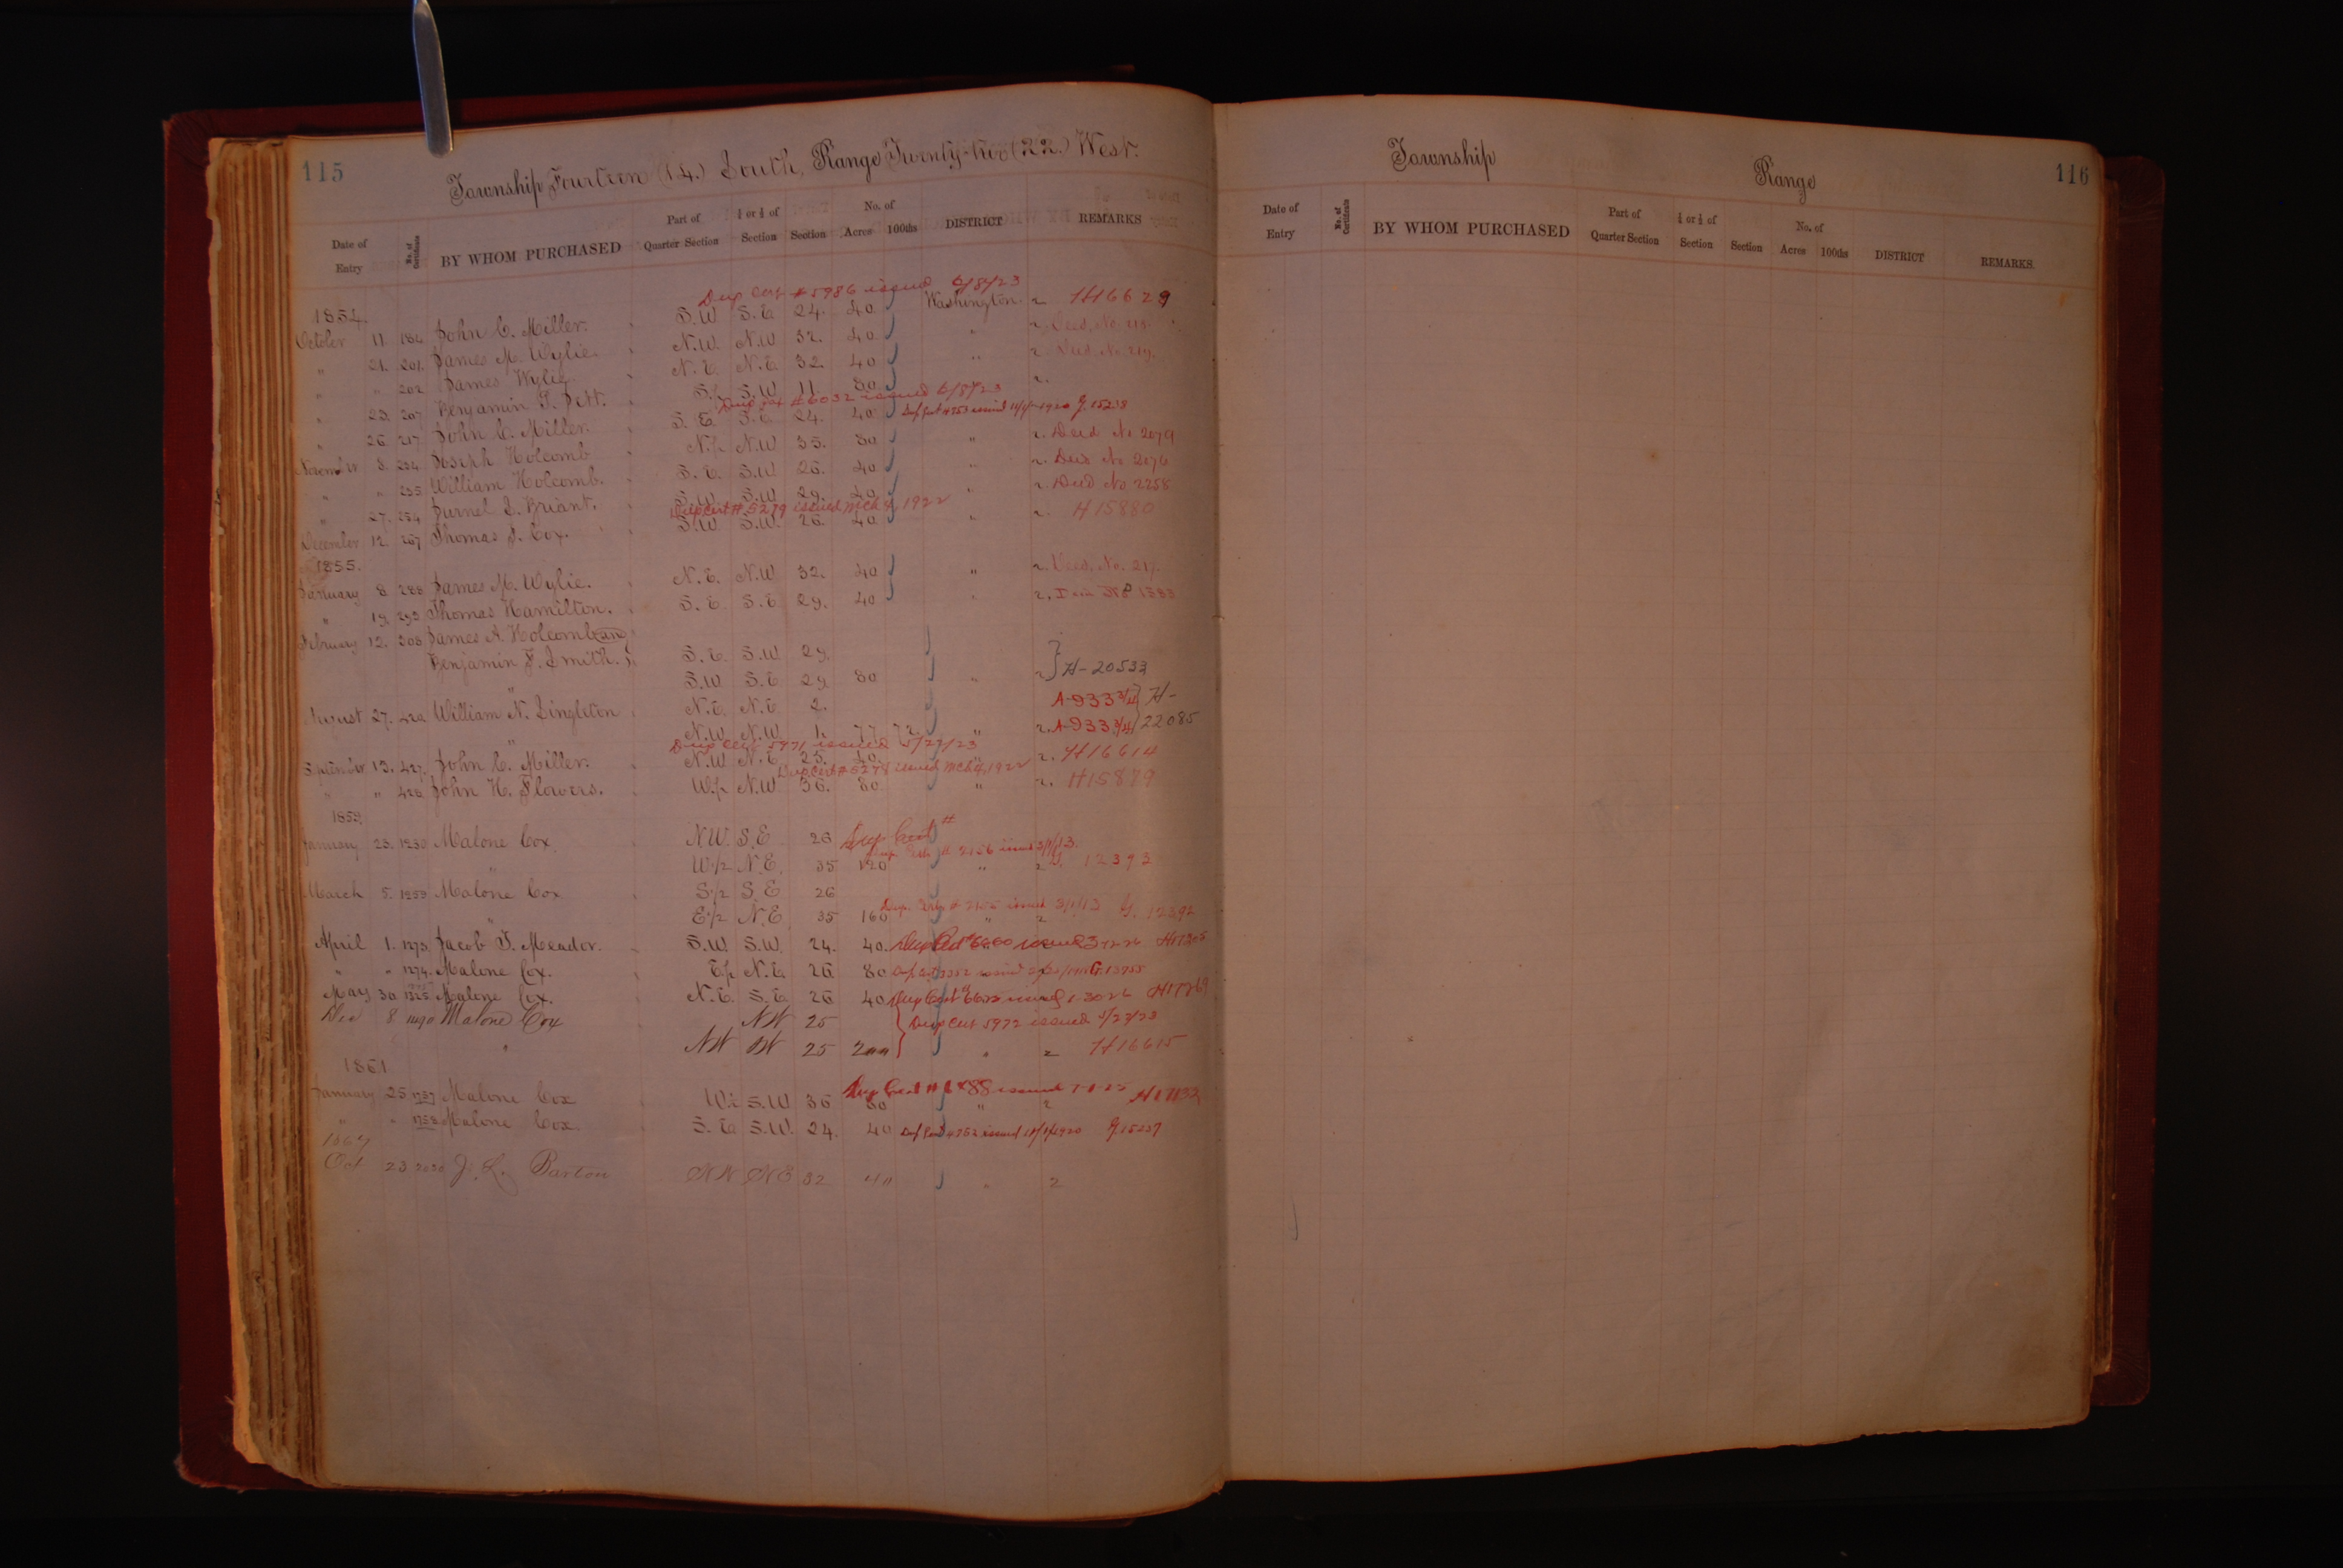 115
Township Fourteen (14.) South, Range Twenty-two (22.) West.
Date of Entry No. of Certificate BY WHOM PURCHASED Part of Quarter Section ¼ or ½ of Section Section No. of Acres 100ths DISTRICT REMARKS
Dup Cert # 5986 issued 6/8/23
1854.
October 11. 184 John C. Miller. S.W S.E 24. 40 Washington. 2 H16629
" 21. 201. James M. Wylie. N.W. N.W 32. 40 " 2. Deed. No. 218.
" " 202 James Wylie. N.E. N.E. 32. 40 " 2. Deed No 219.
" 23. 207 Benjamin T. Jett. S½ S.W 11. 80 2.
Dup #6032 issued 6/8/23
" 26. 217 John C. Miller. S.E. S.E. 24. 40 Dup Cert #753 issued 1920 G.15238
November 8. 234 Joseph Holcomb N.½ N.W 35. 80 " 2. Deed No 2079
" " 235 William Holcomb. S.E. S.W 26. 40 " 2. Deed No 2076
" 27. 254 Purnel S. Briant. S.W S.W 29. 40 " 2. Deed No 2258
Dup Cert # 5279 issued Mch 4, 1922
December 12. 267 Thomas J. Cox. S.W S.W. 26. 40 " 2. H15880
1855.
January 8 288 James M. Wylie. N.E. N.W 32. 40 " 2. Deed. No. 217.
" 19. 293 Thomas Hamilton. S.E. S.E 29. 40 " 2. No 1583
February 12. 308 James A. Holcomb and
Benjamin F. Smith. S.E. S.W 29.
" S.W S.E 29 80 " 2 H-20533
August 27. 420 William N. Singleton N.E. N.E 2. A-933¾ H-
" N.W N.W 1. 77 72. " 2. A-933¾ 22085
Dup Cert 5971 issued 5/22/23
September 13. 427. John C. Miller. N.W N.E 25. 40. " 2. H16614
Dup Cert # 5278 issued Mch 4, 1922
" " 428 John H. Flowers. W.½ N.W 36. 80 " 2. H15879
1859.
January 23. 1230 Malone Cox N.W. S.E 26 Dup Cert #
Dup. Cert. # 2156 issued 3/1/13.
" W.½ N.E. 35 120 " 2 G. 12393
March 5. 1259 Malone Cox S½ S.E 26
Dup. Cert. # 2155 issued 3/1/13 G. 12392
" E.½ N.E 35 160 " 2
April 1. 1273. Jacob T. Meador. S.W. S.W. 24. 40. Dup Cert # 6660 issued 3-22-26 H17305
" " 1274. Malone Cox. E½ N.E. 26 80 Dup Cert 3352 issued G.13755
May 30 1325 Malone Cox. N.E. S.E. 26 40 Dup Cert # 6623 issued 1-30-26 H17269
Dec 8 1490 Malone Cox NW 25 Dup Cert 5972 issued 5/22/23
" NW SW 25 200 " 2 H16615
1861
January 25 1757 Malone Cox W½ S.W 36 80 Dup Cert # issued 7-8-25 H17132
" " 1758 Malone Cox. S.E S.W. 24. 40 Dup Cert #752 issued 1920 G.15237
1867
Oct 23 J. L. Barton NW NE 32 40 " 2
116
Township Range
Date of Entry No. of Certificate BY WHOM PURCHASED Part of Quarter Section ¼ or ½ of Section Section No. of Acres 100ths DISTRICT REMARKS.